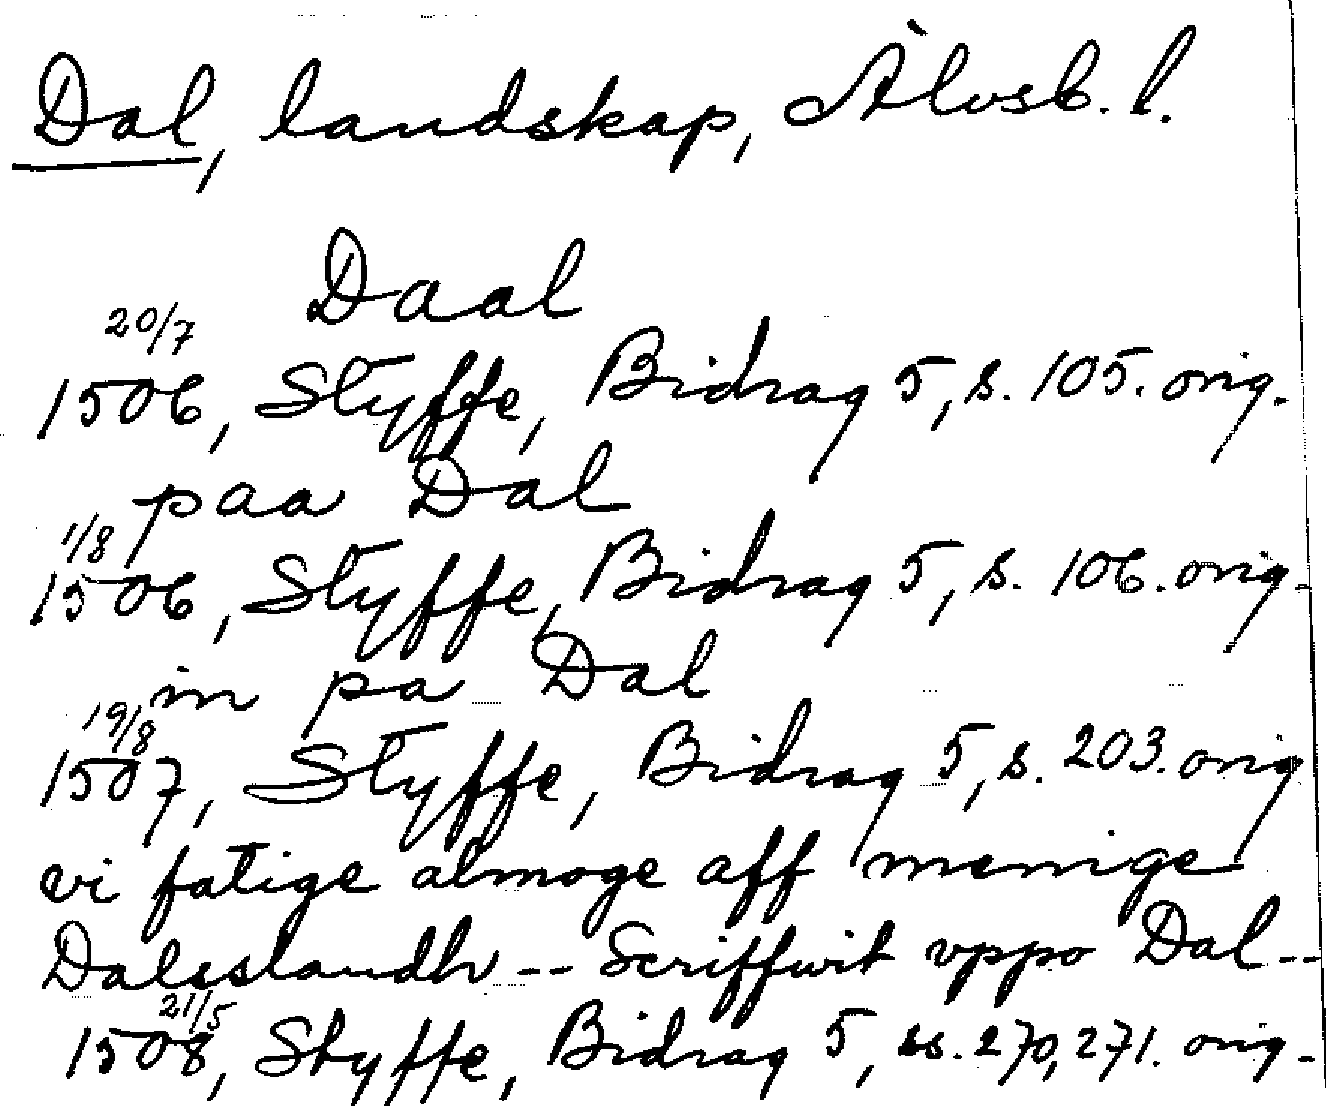 Dal, landskap, Älvsb. l.
Daal
20/7
1506, Styffe, Bidrag 5, s. 105. orig.
paa Dal
1/8
1506, Styffe, Bidrag 5, s. 106. orig.
in pa Dal
19/8
1507, Styffe, Bidrag 5, s. 203. orig
vi fatige almoge aff menige
Dalsslandh -- Scriffwit vppo Dal --
21/5
1508, Styffe, Bidrag 5, ss. 270, 271. orig.